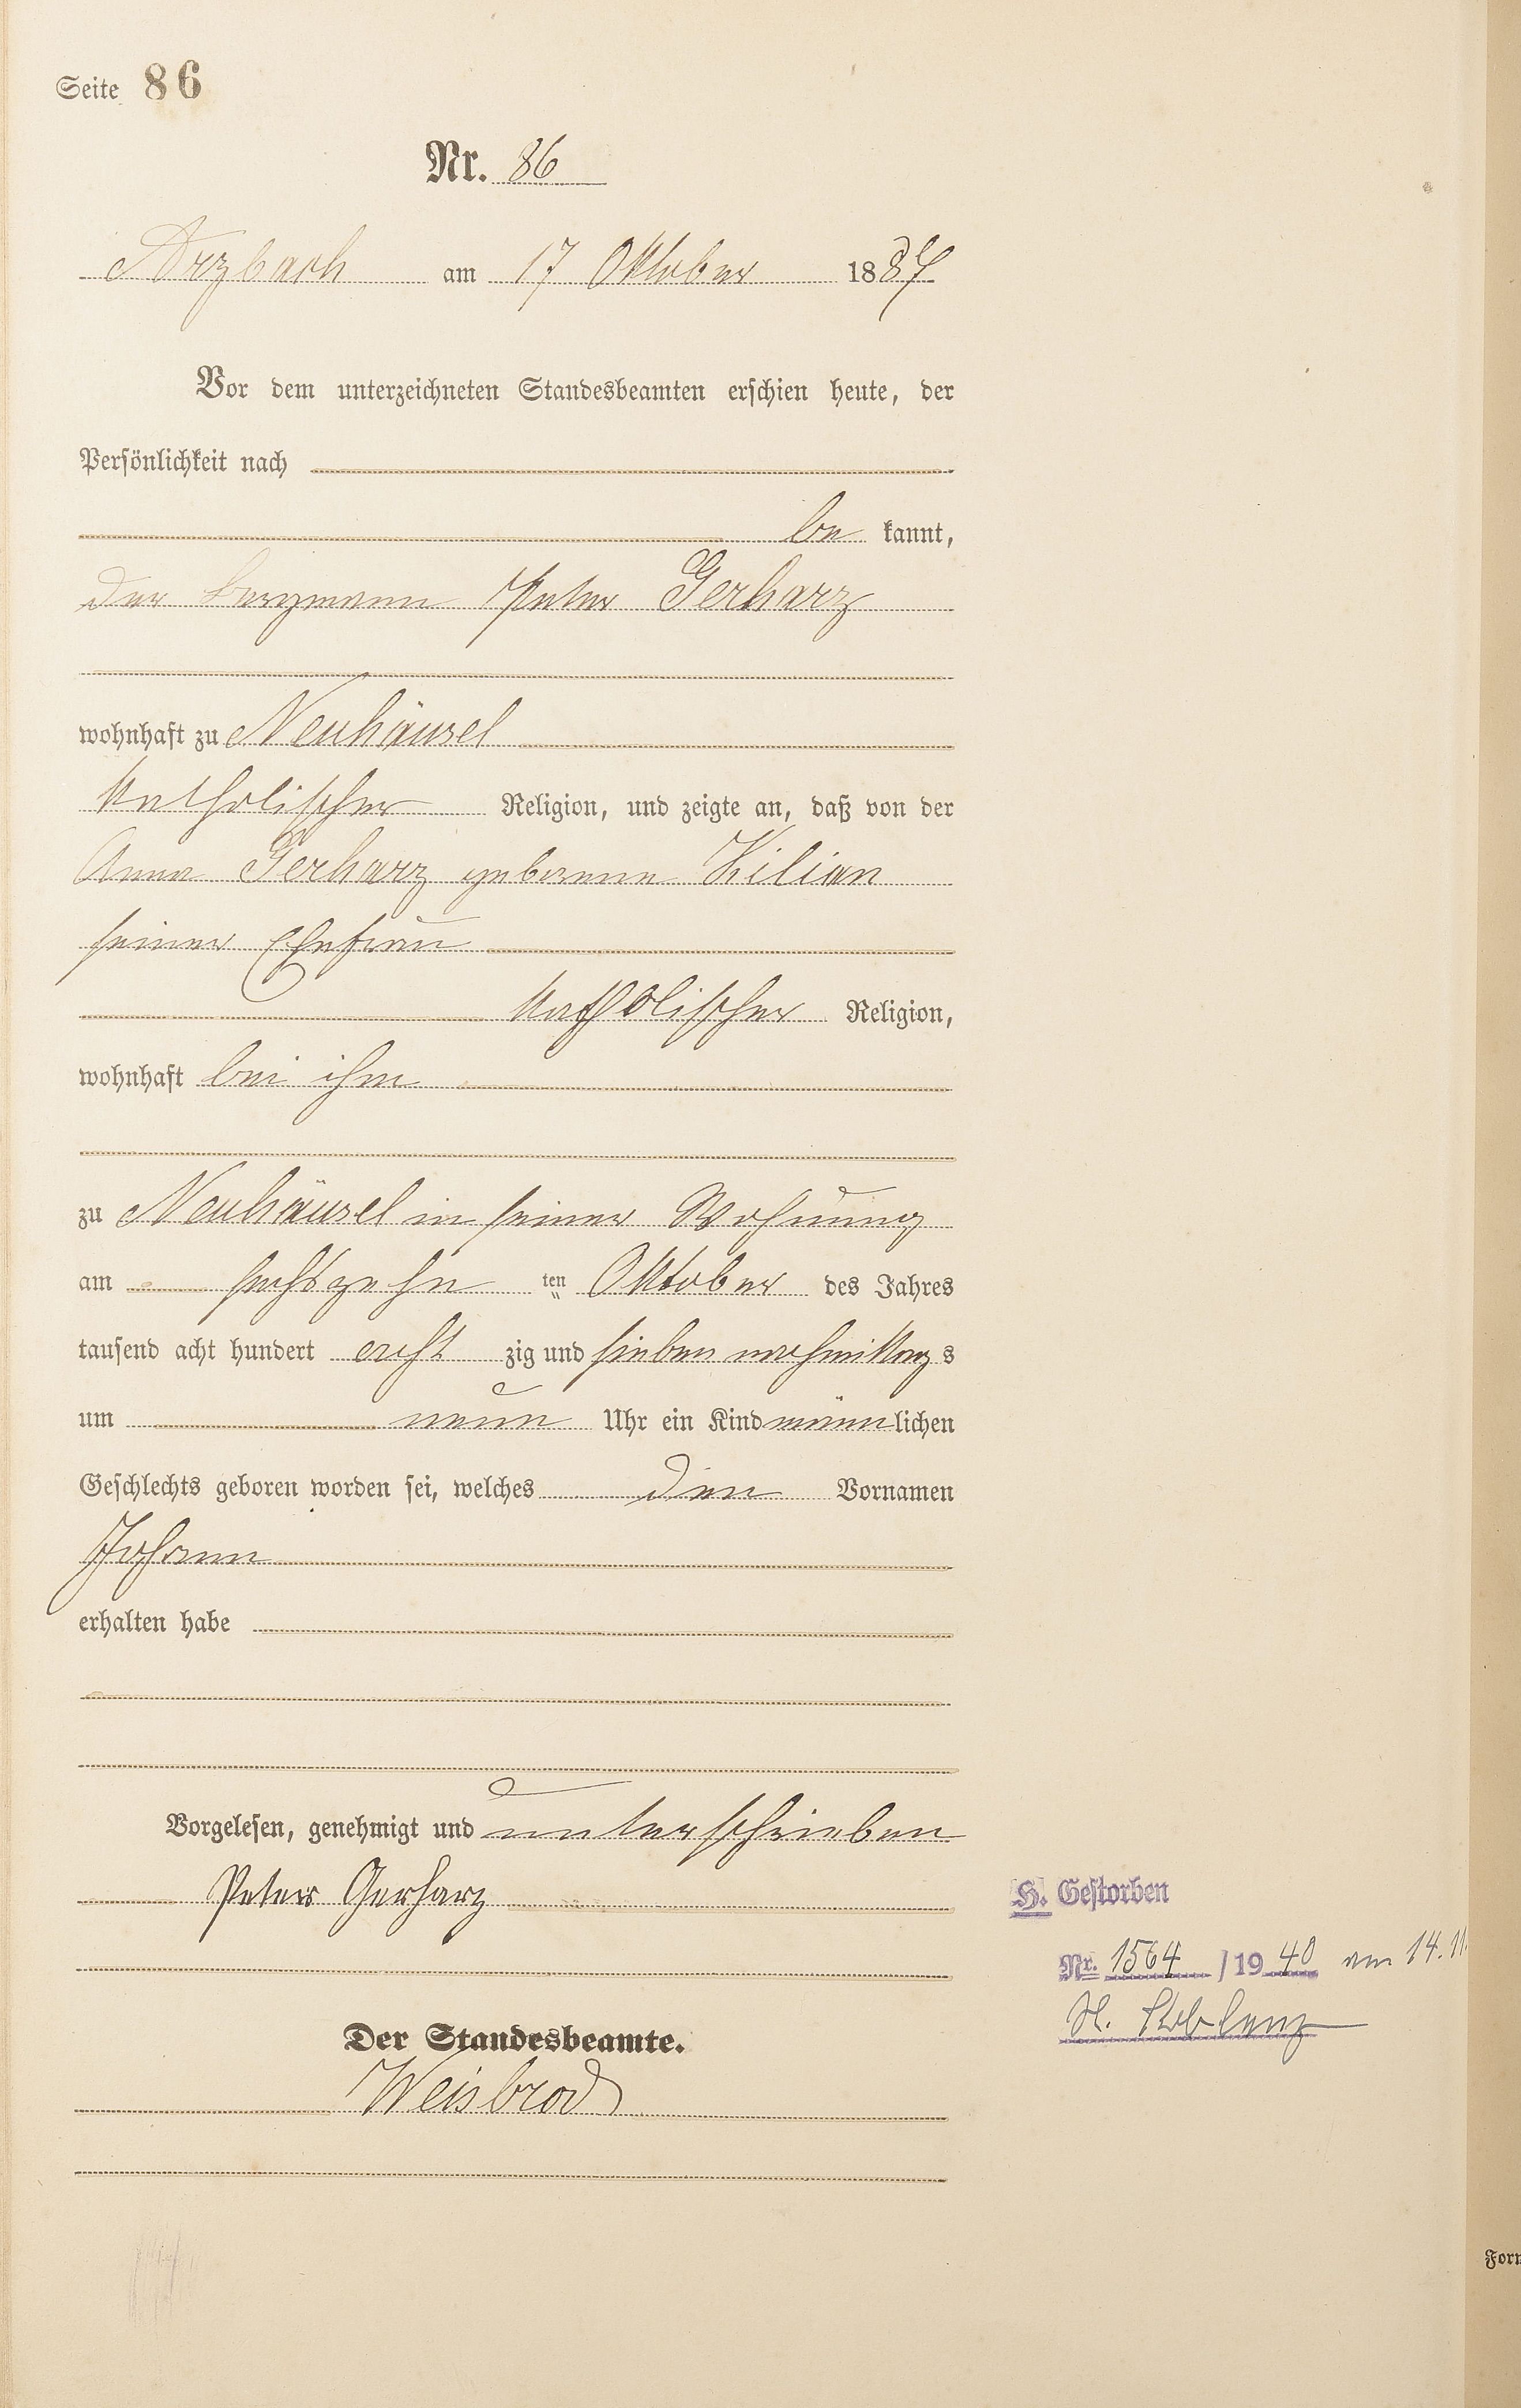 Seite 86
Nr. 86
Arzbach am 17 Oktober 1887
Vor dem unterzeichneten Standesbeamten erschien heute, der
Persönlichkeit nach
be kannt,
der Bergmann Peter Gerharz
wohnhaft zu Neuhäusel
katholischer Religion, und zeigte an, daß von der
Anna Gerharz geborene Kilian
seiner Ehefrau
katholischer Religion,
wohnhaft bei ihm
zu Neuhäusel in seiner Wohnung
am sechszehn ten Oktober des Jahres
tausend acht hundert acht zig und sieben nachmittags
um neun Uhr ein Kind männlichen
Geschlechts geboren worden sei, welches den Vornamen
Johann
erhalten habe
Vorgelesen, genehmigt und unterschrieben
Peter Gerharz
H. Gestorben
Nr. 1564 / 19 40 am 14. 11.
St. Koblenz
Der Standesbeamte.
Weisbrod